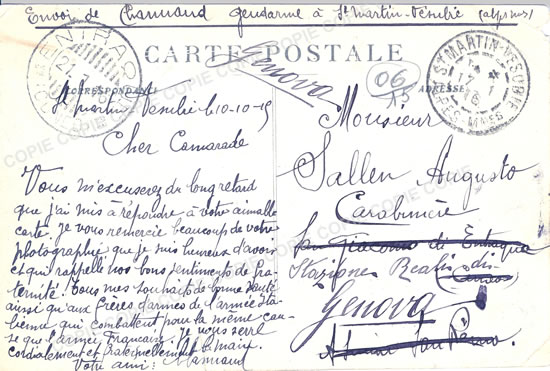 Envoi de Chamand gendarme à St Martin-Vésubie (alpes mmes)
CARTE POSTALE
Genova
CORRESPONDANCE
ADRESSE
ST MARTIN-VESUBIE
ALPES-MMES
06
15
St Martin Vésubie le 10-10-15
Cher Camarade
Vous m'excuserez du long retard
que j'ai mis à répondre à votre aimable
carte, je vous remercie beaucoup de votre
photographie que je suis heureux d'avoir
et qui rappelle nos bons sentiments de fra-
ternité! Tous mes souhaits de bonne santé
aussi qu'aux frères d'armes de l'armée Ita-
lienne qui combattent pour la même cau-
se que l'armée Française. Je vous serre
cordialement et fraternellement la main.
Votre ami:
Monsieur
Sallen Augusto
Carabinière
San Giacomo de Entraque
Stazione Reali di
Genova
COPIE COPIE COPIE